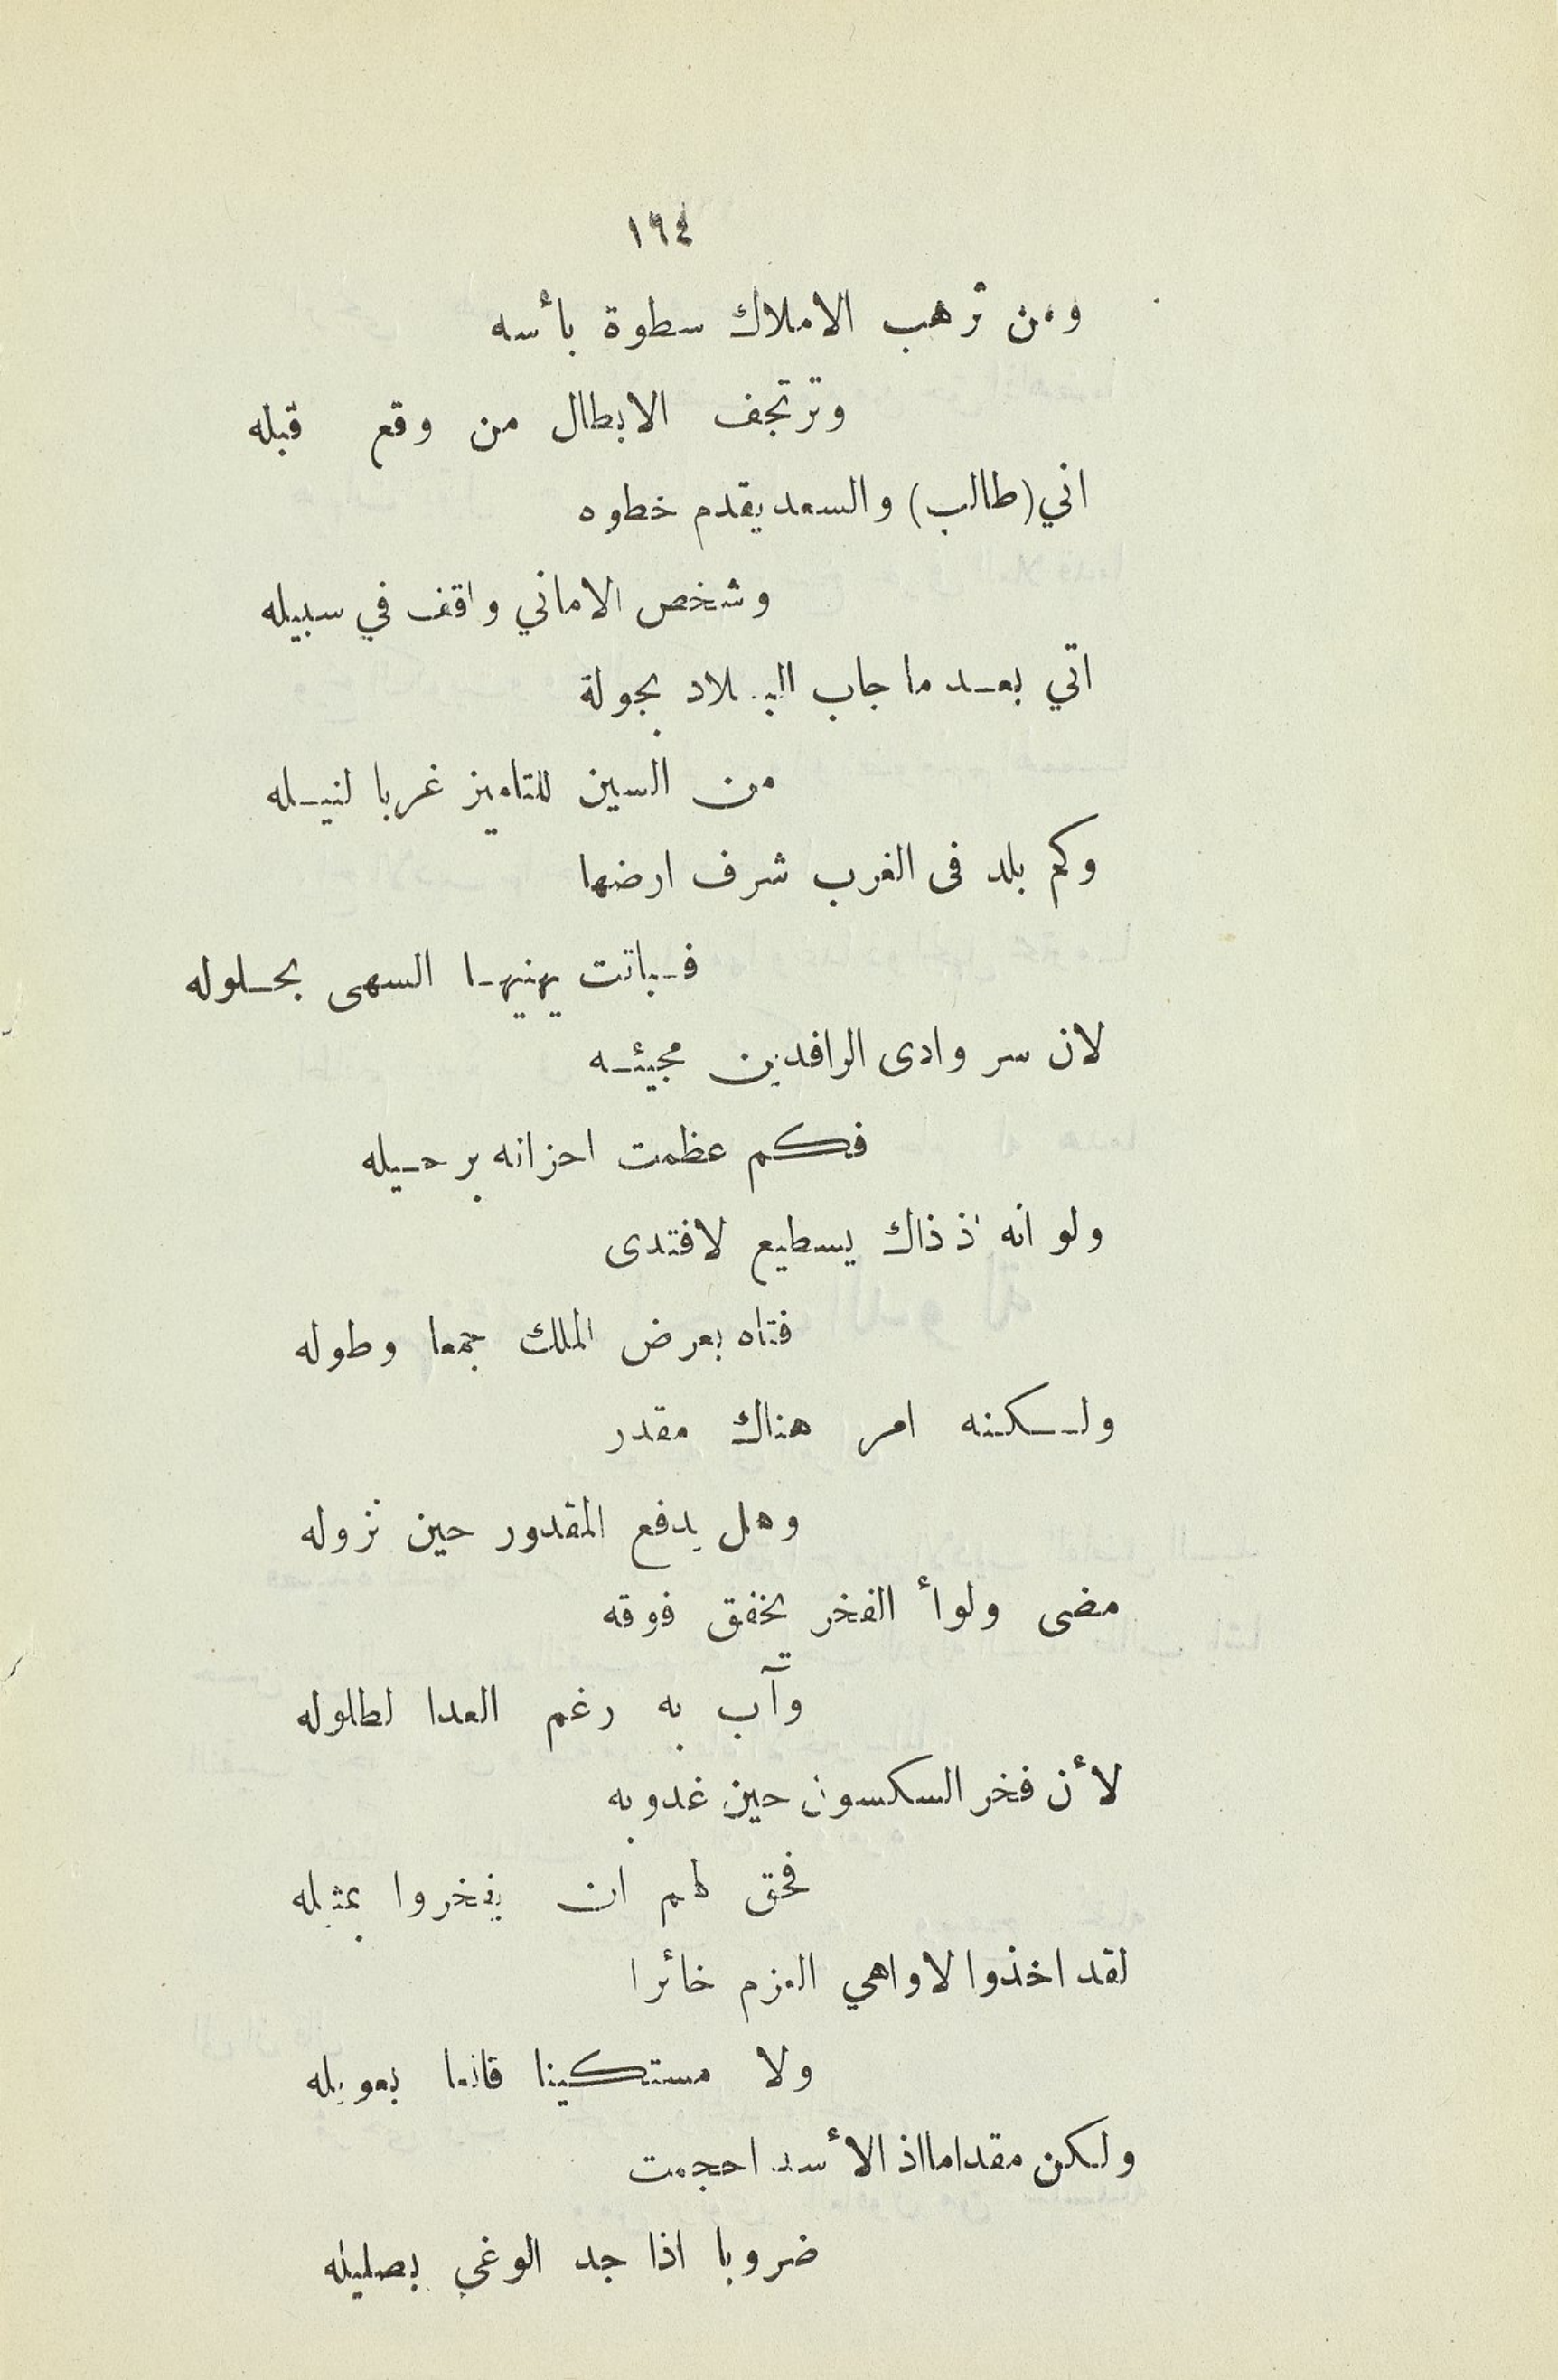 ١٦٤
ومن ترهب الاملاك سطوة بأسه
وترتجف الابطال من وقع قبله
اتي (طالب) والسعد يقدم خطوه
وشخص الاماني واقف في سبيله
اتي بعد ما جاب البلاد بجولة
من السين للتاميز غربا لنيله
وكم بلد فى الغرب شرف ارضها
فباتت يهنيها السهى بحلوله
لان سر وادى الرافدين مجيئه
فكم عظمت احزانه برحيله
ولو انه اذ ذاك يسطيع لافتدى
فتاه بعرض الملك جمعا وطوله
ولكنه امر هناك مقدر
وهل يدفع المقدور حين نزوله
مضى ولوأ الفخر يخفق فوقه
وآب به رغم العدا لطلوله
لأن فخر السكسون حين غدوبه
فحق لهم ان يفخروا بمثيله
لقد اخذوا لاواهي العزم خائرا
ولا مستكينا قانعا بعويله
ولكن مقداما اذ الأسد احجمت
ضروبا اذا جد الوغى بصليله